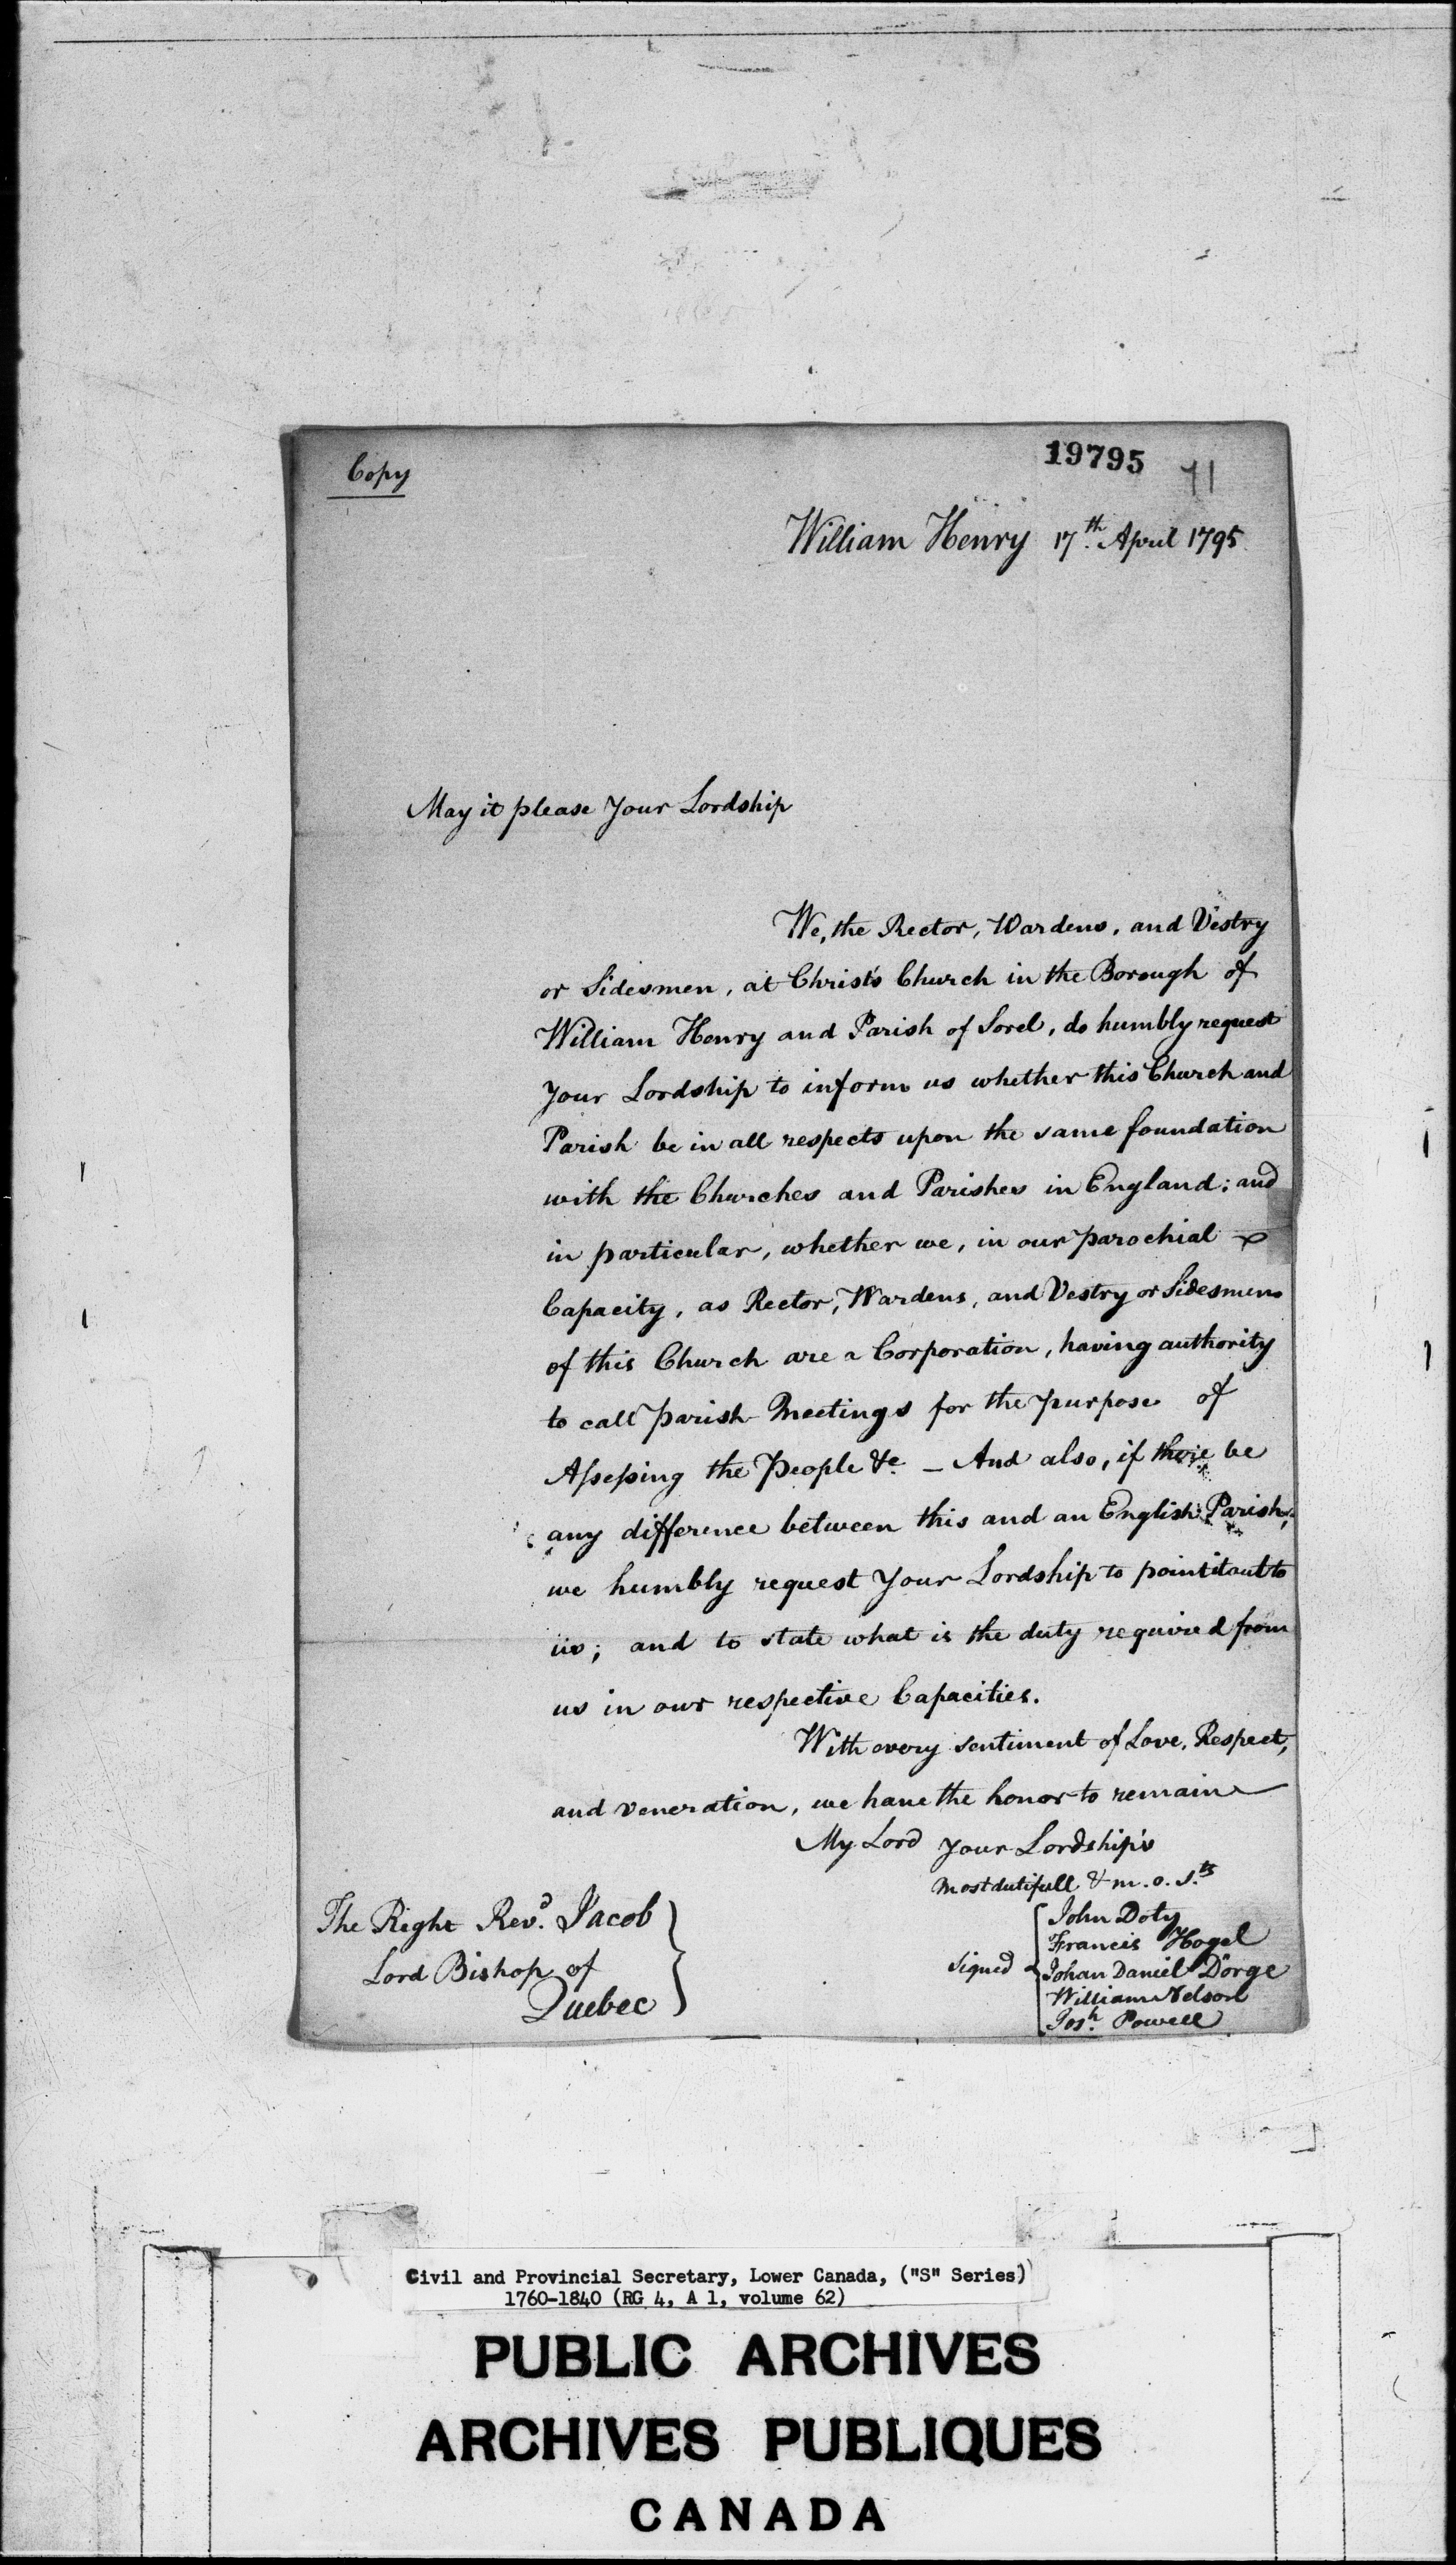 Copy
19795
71
William Henry 17th. April 1795
May it please Your Lordship
We, the Rector, Wardens, and Vestry
or Sidesmen, at Christ's Church in the Borough of
William Henry and Parish of Sorel, do humbly request
Your Lordship to inform us whether this Church and
Parish be in all respects upon the same foundation
with the Churches and Parishes in England; and
in particular, whether we, in our parochial
Capacity, as Rector, Wardens, and Vestry or Sidesmen
of this Church are a Corporation, having authority
to call parish Meetings for the purpose of
Assessing the People &c. – And also, if there be
any difference between this and an English Parish,
we humbly request Your Lordship to point it out to
us; and to state what is the duty required from
us in our respective Capacities.
With every sentiment of Love, Respect,
and veneration, we have the honor to remain
My Lord Your Lordship's
most dutifull & m. o. s.ts
The Right Revd. Jacob
Lord Bishop of
Quebec
Signed
John Doty
Francis Hogel
Johan Daniel Dörge
William Nelson
Josh. Powell
Civil and Provincial Secretary, Lower Canada, ("S" Series)
1760-1840 (RG 4, A 1, volume 62)
PUBLIC ARCHIVES
ARCHIVES PUBLIQUES
CANADA